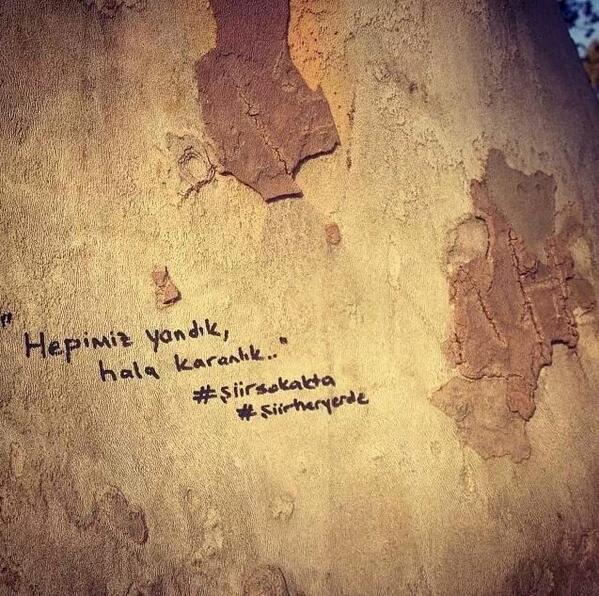 "Hepimiz yandık,
hala karanlık.."
#şiirsokakta
#şiirheryerde